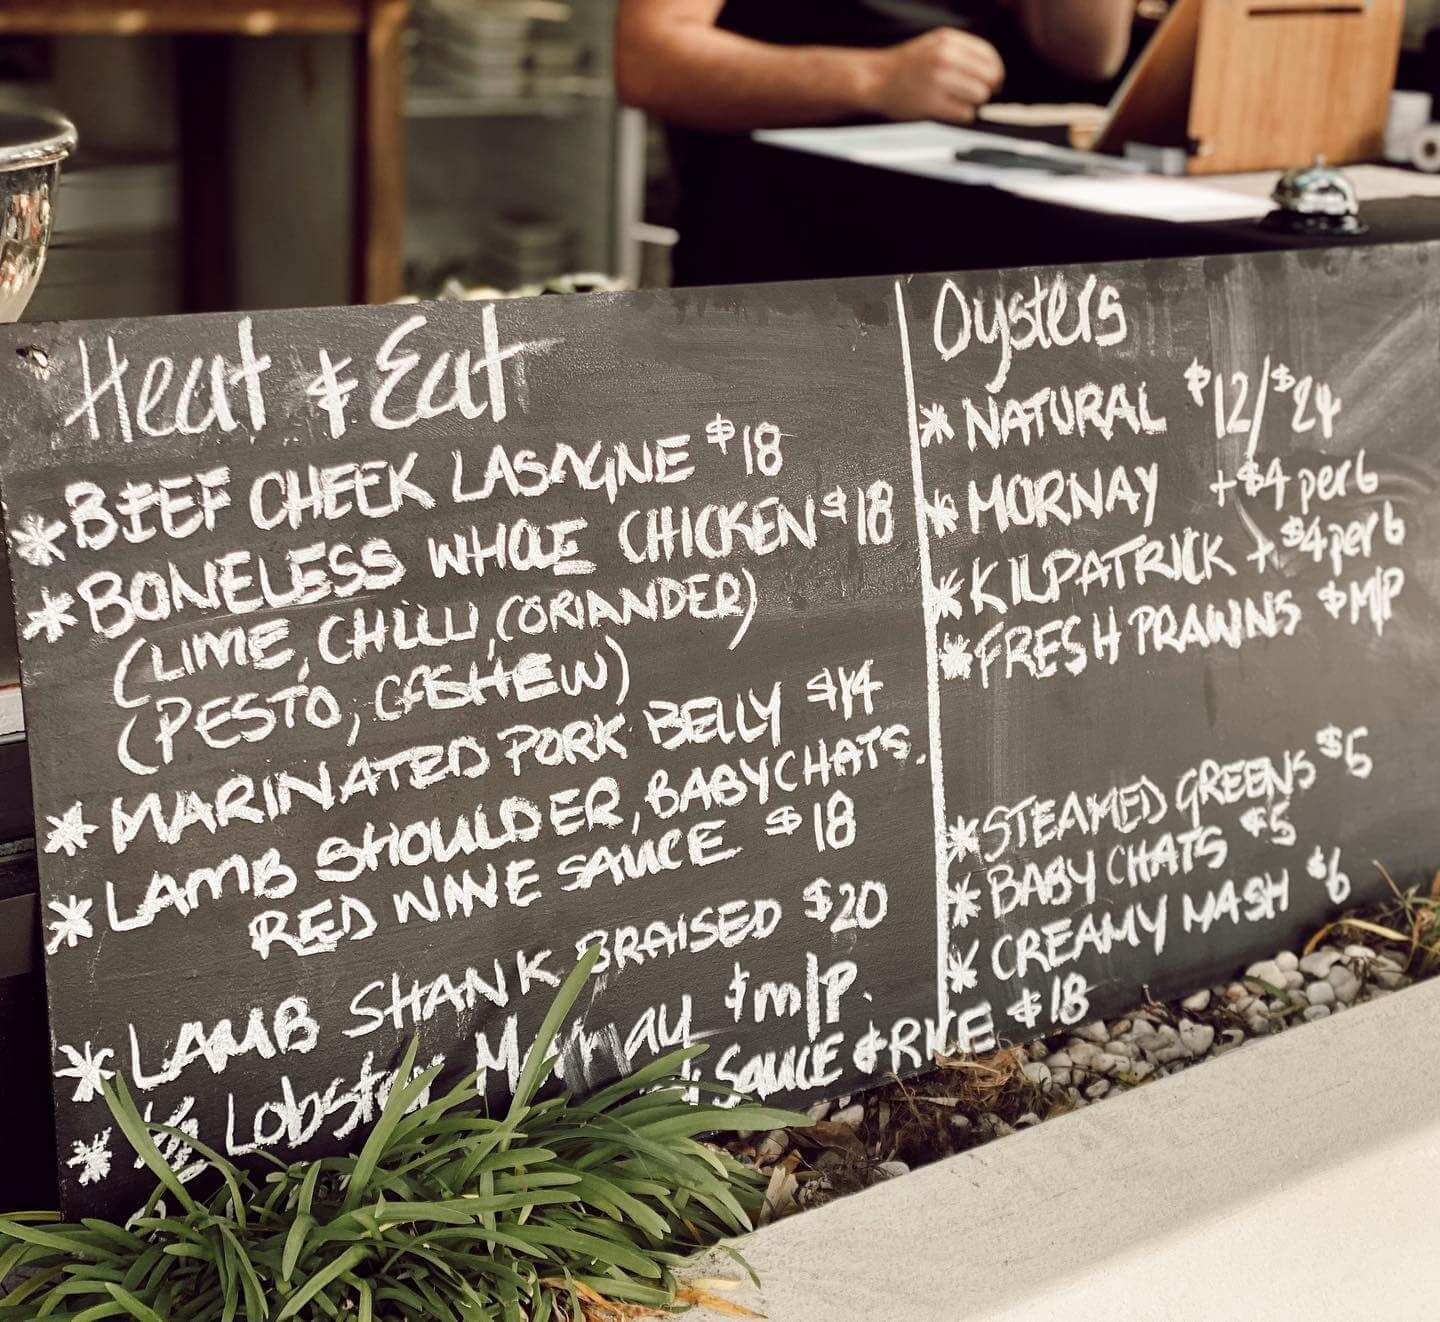 Heat & Eat
* BEEF CHEEK LASAGNE $18
* BONELESS WHOLE CHICKEN $18
(LIME, CHILLI, CORIANDER)
(PESTO, CASHEW)
* MARINATED PORK BELLY $14
* LAMB SHOULDER, BABY CHATS.
RED WINE SAUCE $18
* LAMB SHANK BRAISED $20
* ½ Lobster Mornay $m/P.
SAUCE & RICE $18
Oysters
* NATURAL $12/$24
* MORNAY +$4 per 6
* KILPATRICK +$4 per 6
* FRESH PRAWNS $M/P
* STEAMED GREENS $5
* BABY CHATS $5
* CREAMY MASH $6